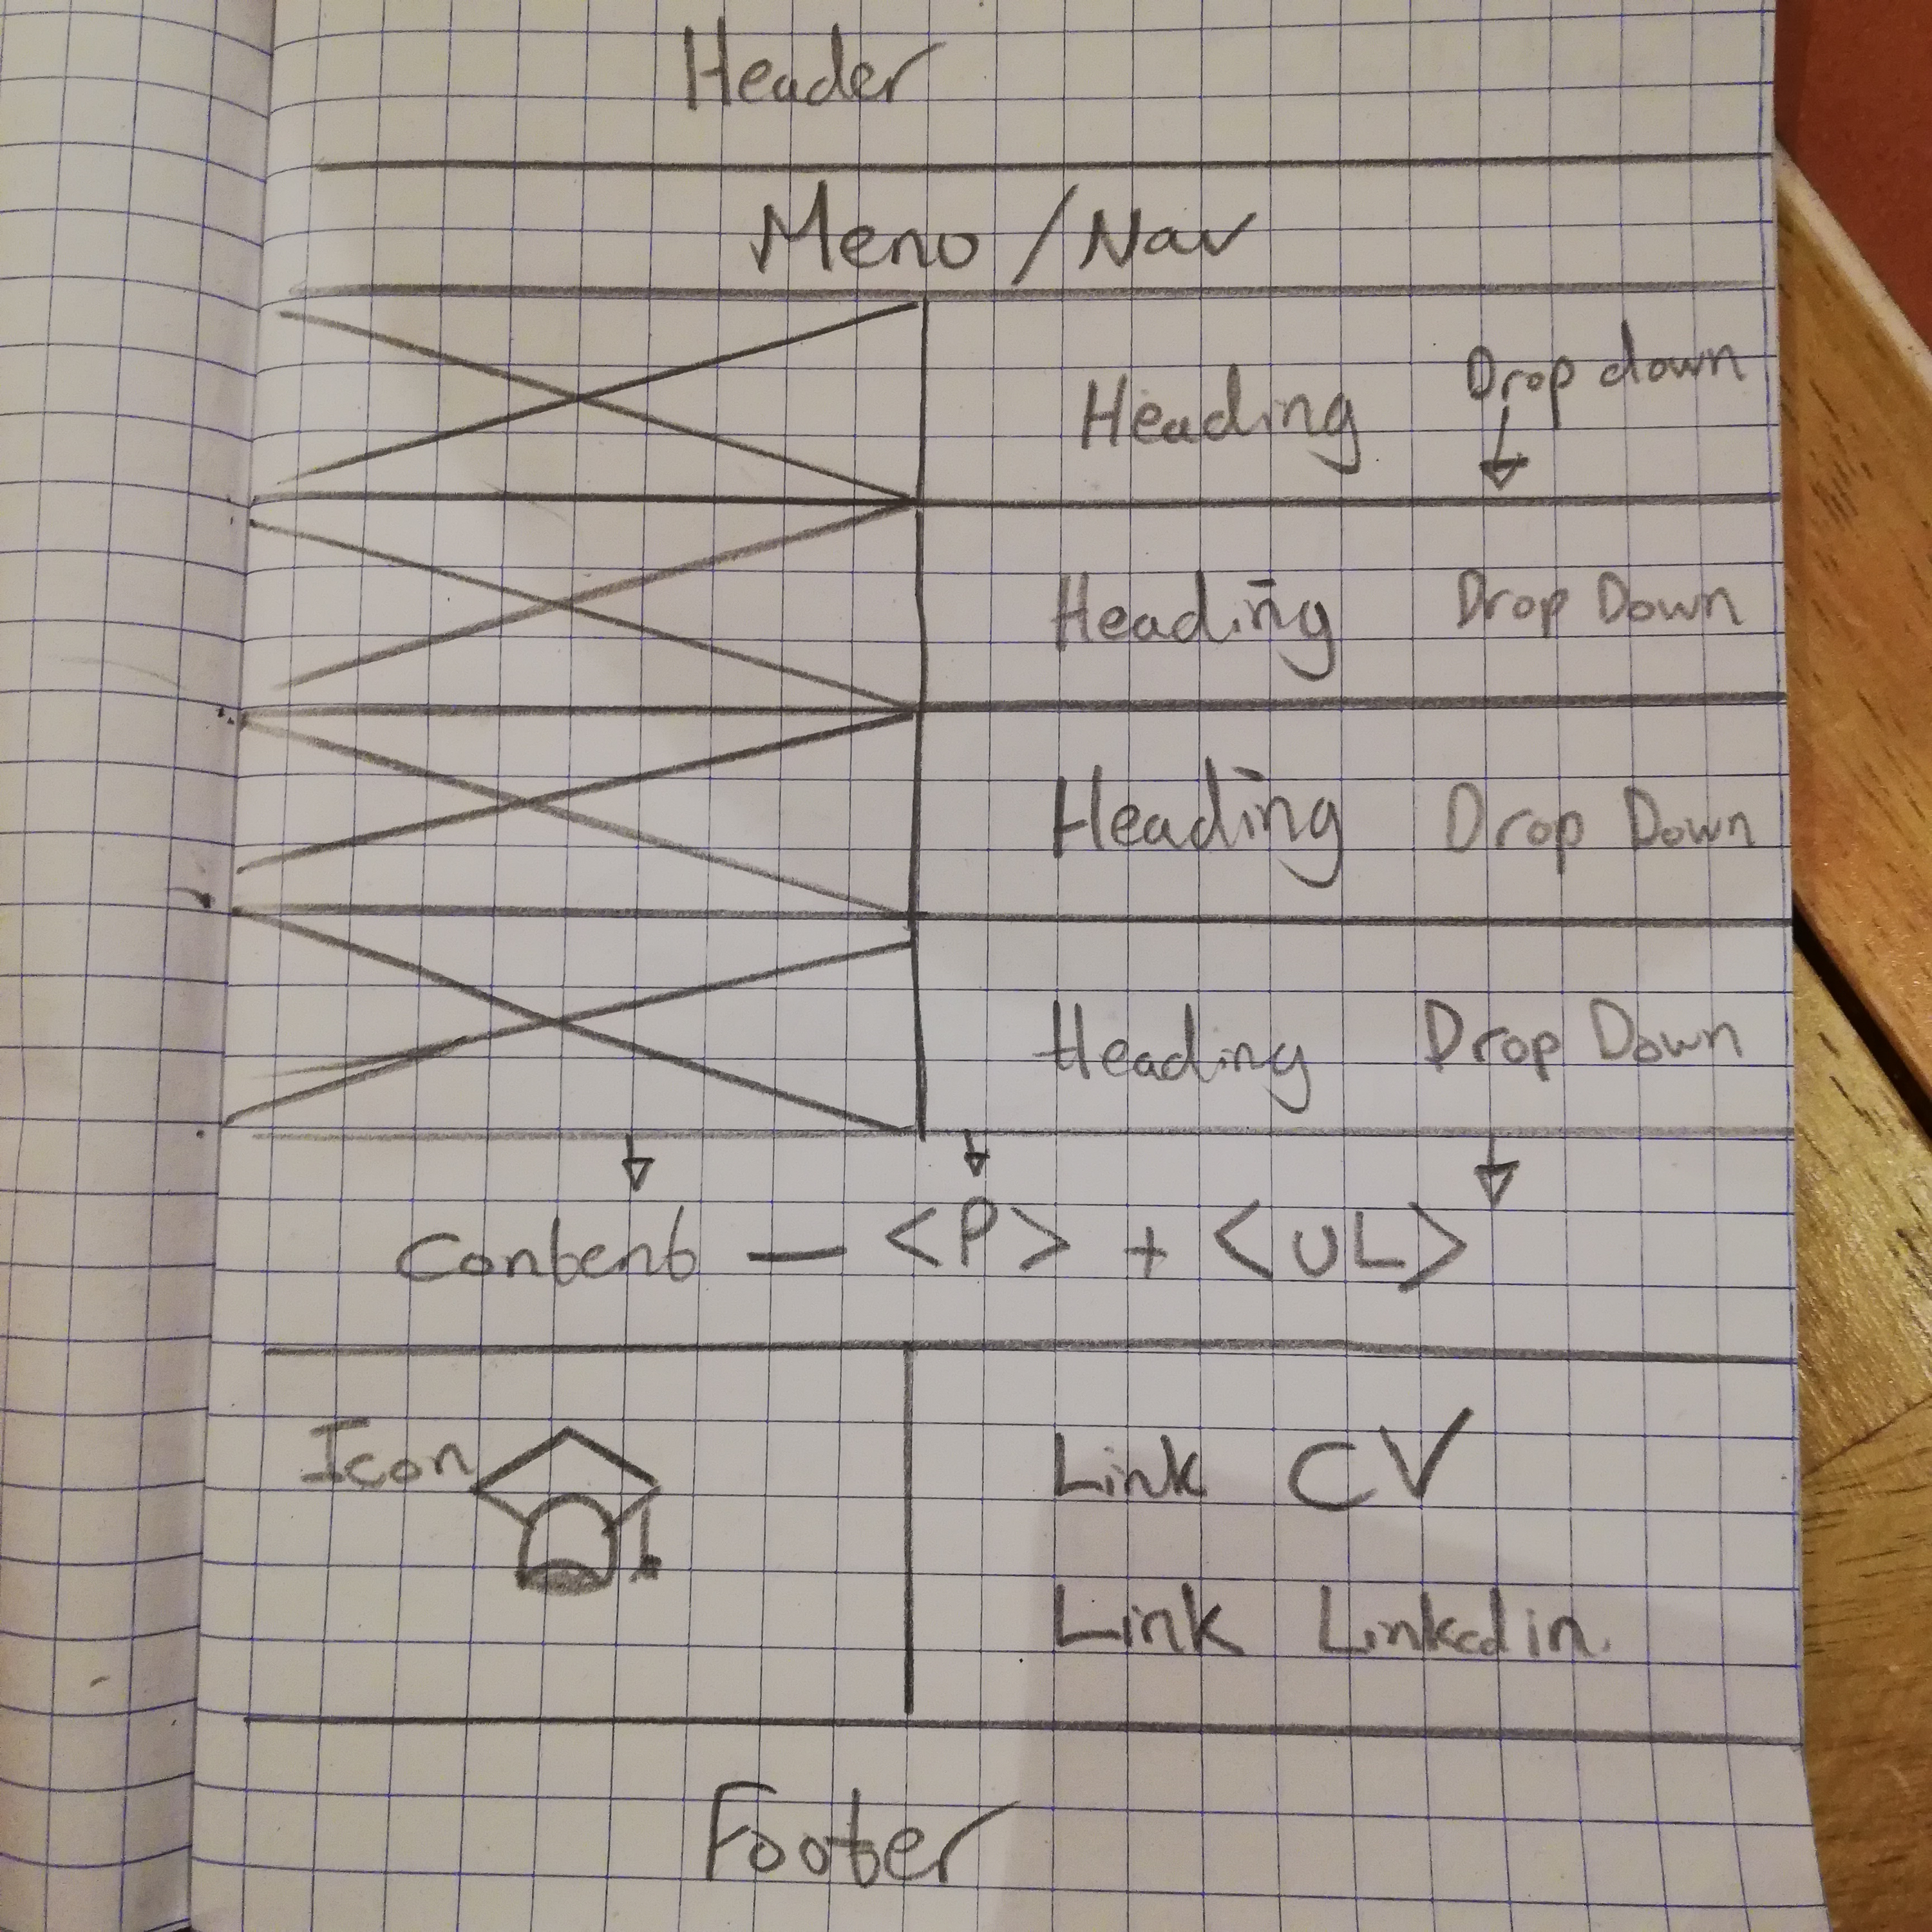 Header
Menu / Nav
Heading Drop down
Heading Drop Down
Heading Drop Down
Heading Drop Down
Content — <P> + <UL>
Icon
Link CV
Link Linkedin.
Footer